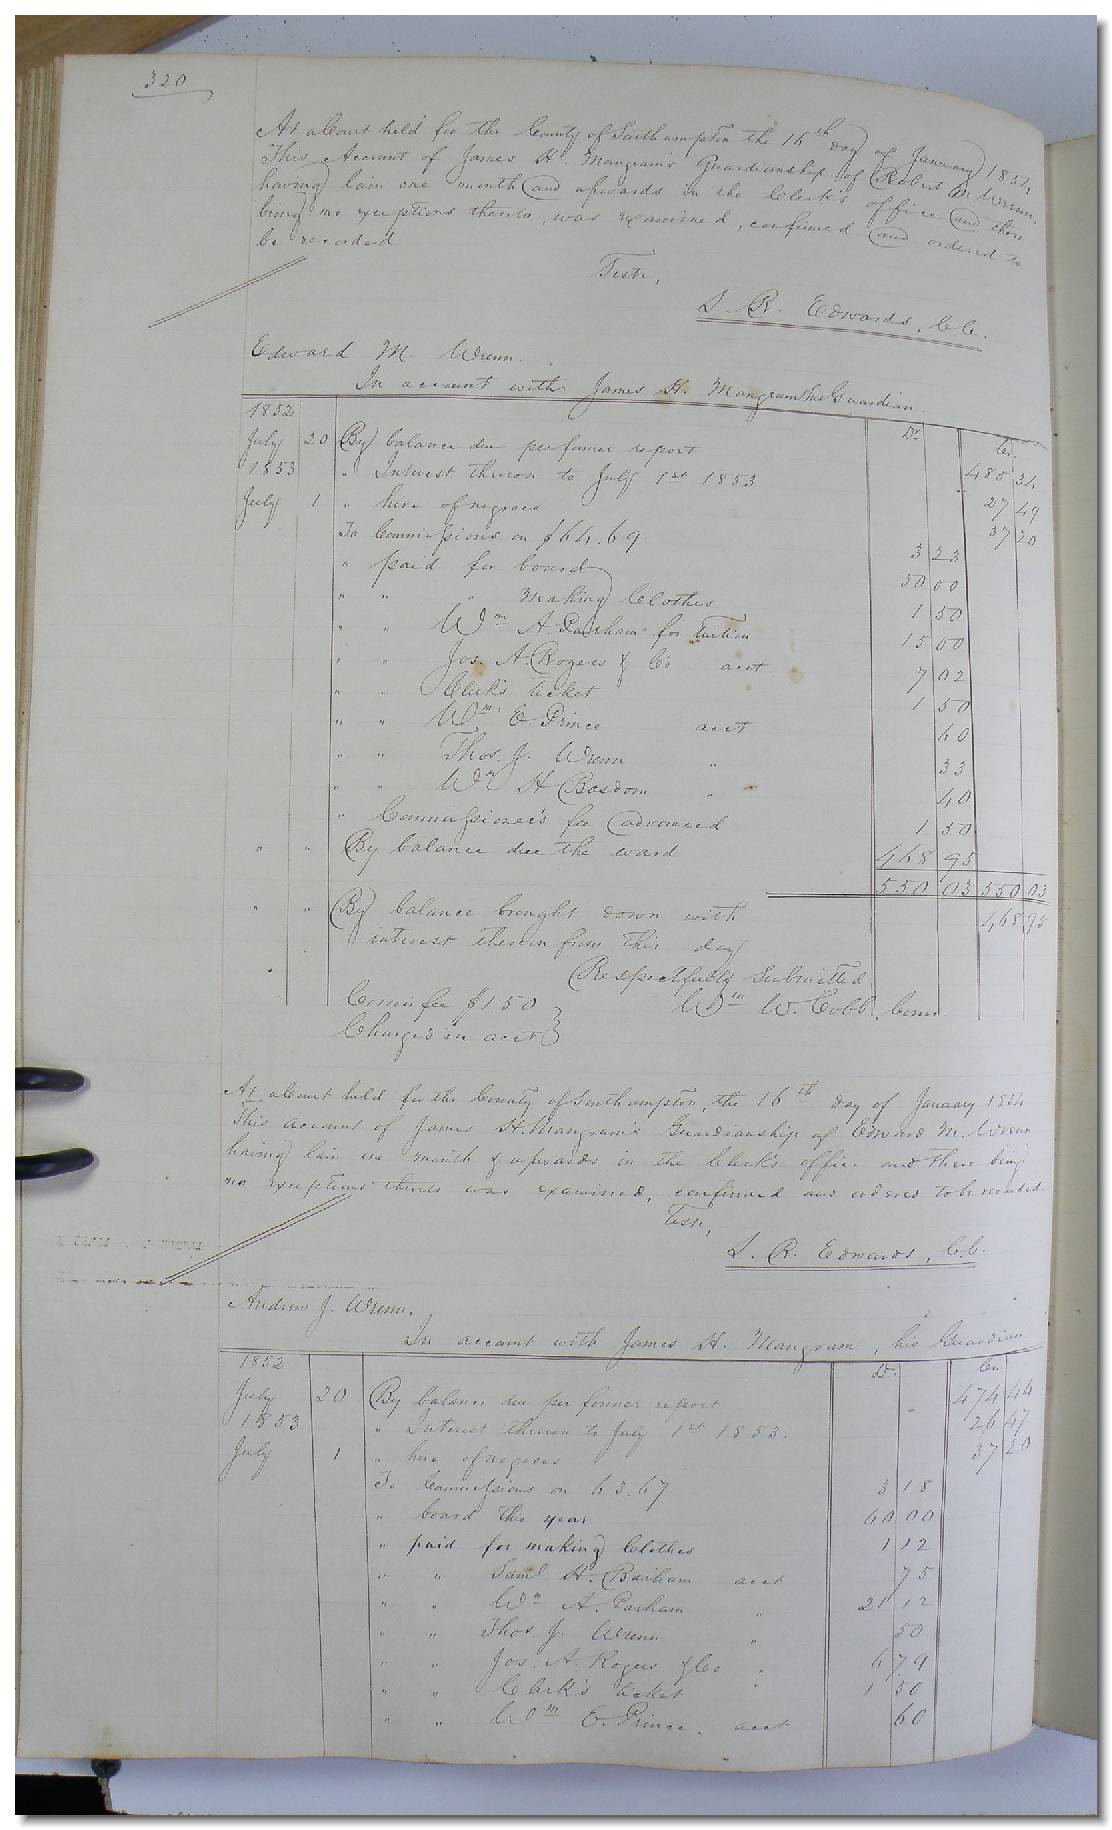 320
At a Court held for the County of Southampton the 16th day of January 1854,
This Account of James H. Mangram's Guardianship of Robert D. Wrenn.
having lain one month and upwards in the Clerk's office and there
being no exceptions thereto, was examined, confirmed and ordered to
be recorded
Teste,
L. R. Edwards, C.C.
Edward M. Wrenn.
In account with James H. Mangram his Guardian.
1852 Dr. Cr.
July 20 By balance due per former report 485 34
1853 " Interest thereon to July 1st 1853 27 49
July 1 " hire of negroes 37 20
To Commissions on $64.69 3 23
" paid for board 50 00
" " " making Clothes 1 50
" " Wm A. Parham for Tuition 15 00
" " Jos. A. Rogers & Co acct 7 02
" " Clerk's ticket 1 50
" " Wm. E Prince acct 60
" " Thos. J. Wrenn " 33
" " Wm H Bosdom " 40
" Commissioner's fee advanced 1 50
" " By balance due the ward 468 95
550 03 550 03
" " By balance brought down with 468 95
interest thereon from this day
Respectfully Submitted
Comrs fee $1.50 Wm W. Cobb, Comr
Charged in acct
At a Court held for the County of Southampton, the 16th day of January 1854
This account of James H. Mangram's Guardianship of Edward M. Wrenn
having lain one month & upwards in the Clerk's office and there being
no exceptions thereto was examined, confirmed and ordered to be recorded.
Teste,
L. R. Edwards, C.C.
Andrew J. Wrenn.
In account with James H. Mangram, his Guardian
1852 Dr. Cr.
July 20 By balance due per former report 474 44
1853 " Interest thereon to July 1st 1853. 26 47
July 1 " hire of negroes 37 20
To Commissions on 63.67 3 18
" board this year 60 00
" paid for making Clothes 1 12
" " Saml H. Barham acct 75
" " Wm A. Parham " 21 12
" " Thos. J. Wrenn " 50
" " Jos. A. Rogers & Co " 6 79
" " Clerk's ticket " 1 50
" " Wm E. Prince. acct 60